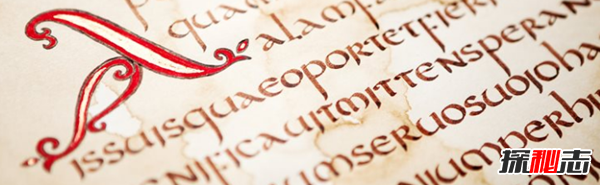 qua
palamfa
issuisquaeoportetfieri
nificauitmittensperan
umseruosuoioha
niumperhi
探秘志